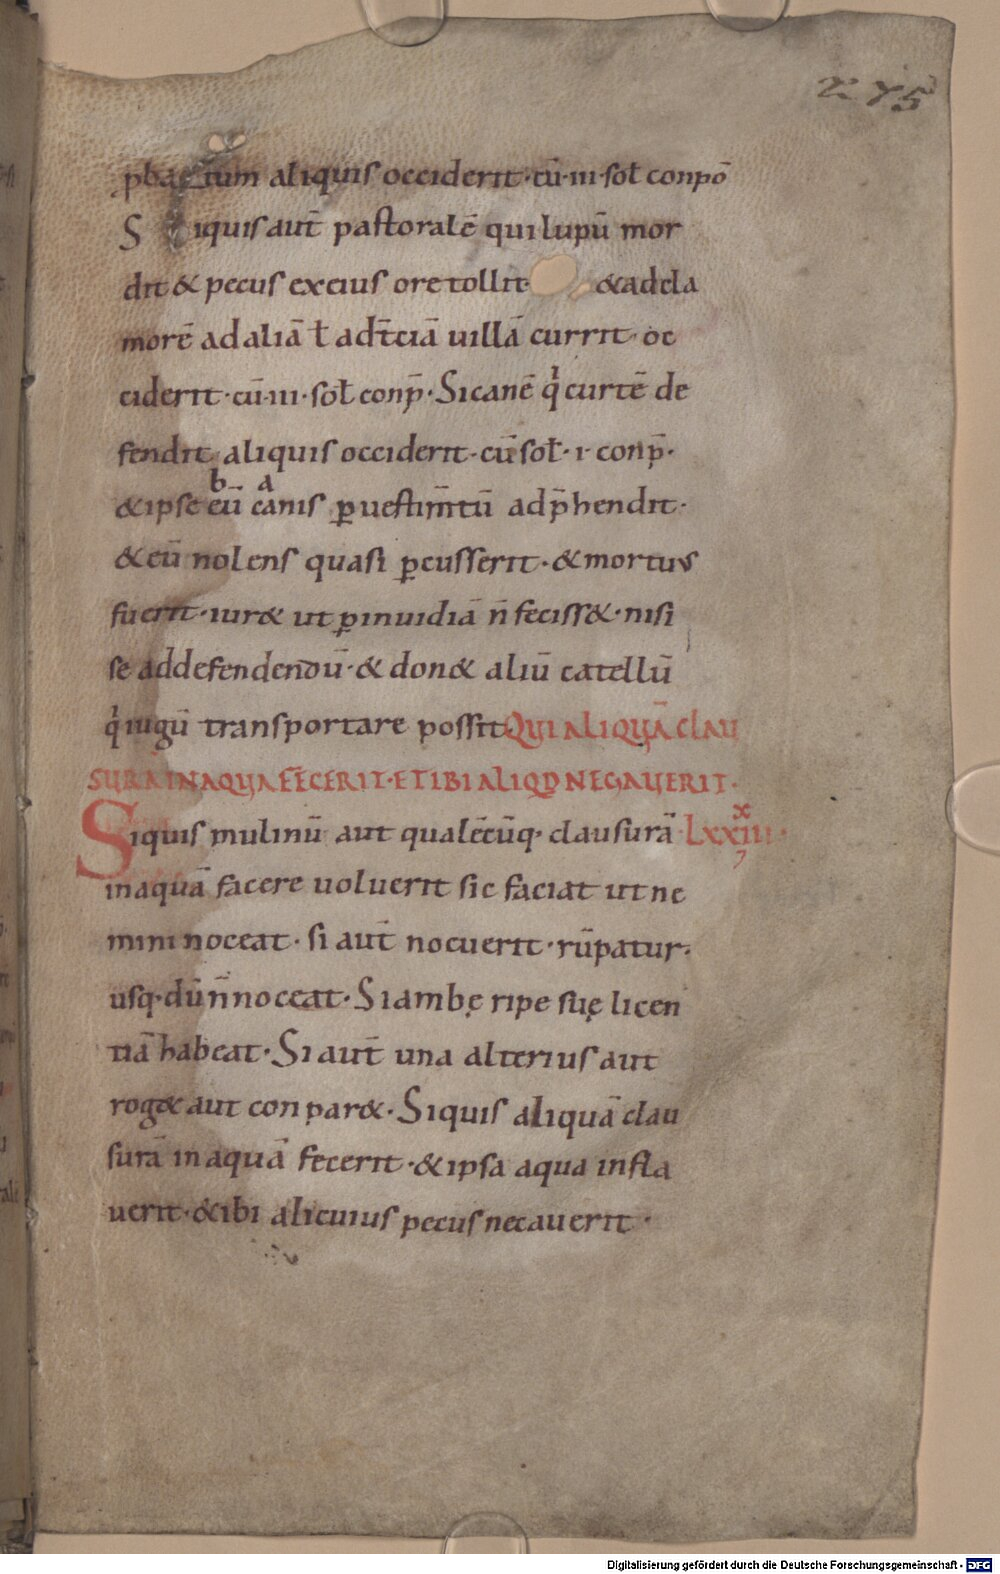 245
pbatum aliquis occiderit · cū · III · soł conpō
S iquis aut̄ pastoralē qui lupū mor
dit & pecus ex eius ore tollit & ad cla
morē ad aliā ł ad t̄ciā uillā currit · oc
ciderit · cū · III · soł conp̄ · Si canē q̇ curtē de
fendit aliquis occiderit · cū soł · I · conp̄ ·
b a
& ipse eū canis ꝑ uestim̄tū adp̄hendit ·
& eū nolens quasi ꝑcusserit · & mortuus
fuerit · iur& ut ꝑ inuidiā n̄ feciss& · nisi
se ad defendendū · & don& aliū catellū
q̇ iugū transportare possit QUI ALIQUĀ CLAU
SURĀ IN AQUA FECERIT · ET IBI ALIQD NEGAUERIT ·
Siquis mulinū aut qualēcūq · clausurā · LXXIII ·
x
in aquā facere uoluerit sic faciat ut ne
mini noceat · si aut̄ nocuerit · rūpatur ·
usq · dū n̄ noceat · Si ambę ripe suę licen
tiā habeat · Si aut̄ una alterius aut
rog& aut conpar& · Siquis aliquā clau
surā in aquā fecerit · & ipsa aqua infla
uerit · & ibi alicuius pecus necauerit ·
Digitalisierung gefördert durch die Deutsche Forschungsgemeinschaft - DFG